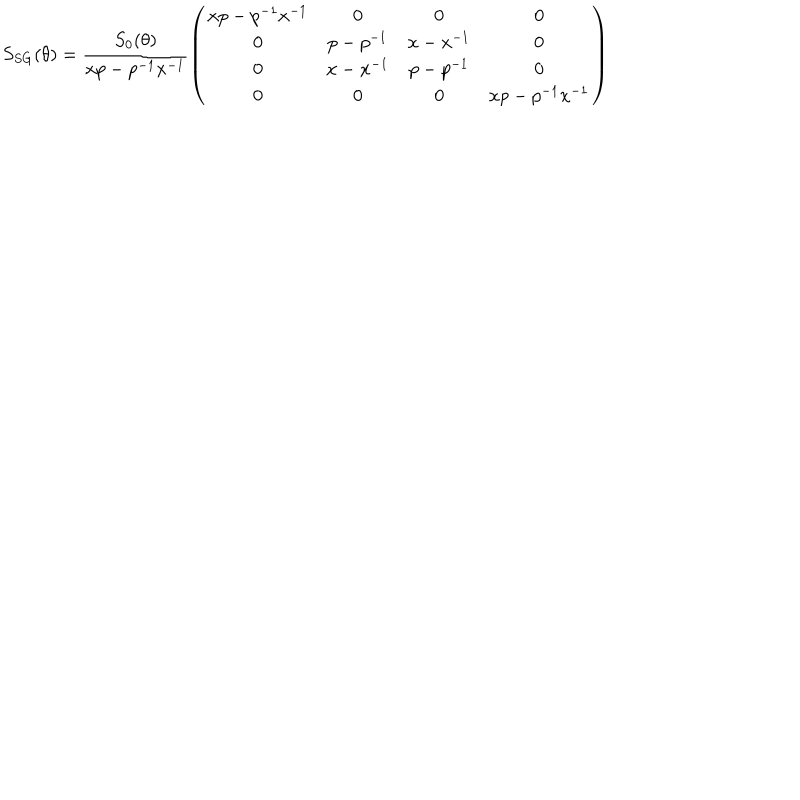 S_{SG}(\theta) = \frac{S_0(\theta)}{xp - p^{-1}x^{-1}} \begin{pmatrix} xp - p^{-1}x^{-1} & 0 & 0 & 0 \\ 0 & p - p^{-1} & x - x^{-1} & 0 \\ 0 & x - x^{-1} & p - p^{-1} & 0 \\ 0 & 0 & 0 & xp - p^{-1}x^{-1} \end{pmatrix}